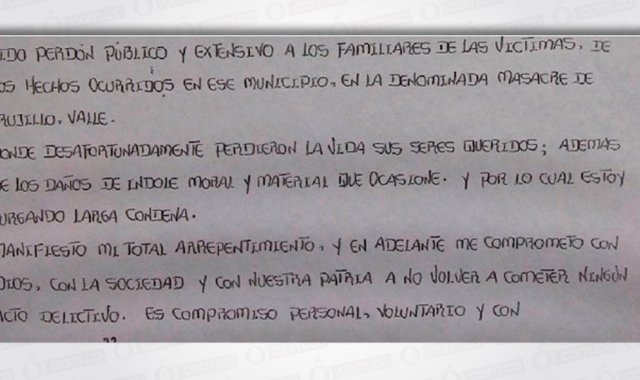 IDO PERDÓN PÚBLICO Y EXTENSIVO A LOS FAMILIARES DE LAS VICTIMAS, DE
OS HECHOS OCURRIDOS EN ESE MUNICIPIO, EN LA DENOMINADA MASACRE DE
RUJILLO, VALLE.
ONDE DESAFORTUNADAMENTE PERDIERON LA VIDA SUS SERES QUERIDOS; ADEMAS
E LOS DAÑOS DE INDOLE MORAL Y MATERIAL QUE OCASIONE. Y POR LO CUAL ESTOY
URGANDO LARGA CONDENA.
MANIFIESTO MI TOTAL ARREPENTIMIENTO, Y EN ADELANTE ME COMPROMETO CON
DIOS, CON LA SOCIEDAD Y CON NUESTRA PATRIA A NO VOLVER A COMETER NINGÚN
ACTO DELICTIVO. ES COMPROMISO PERSONAL, VOLUNTARIO Y CON